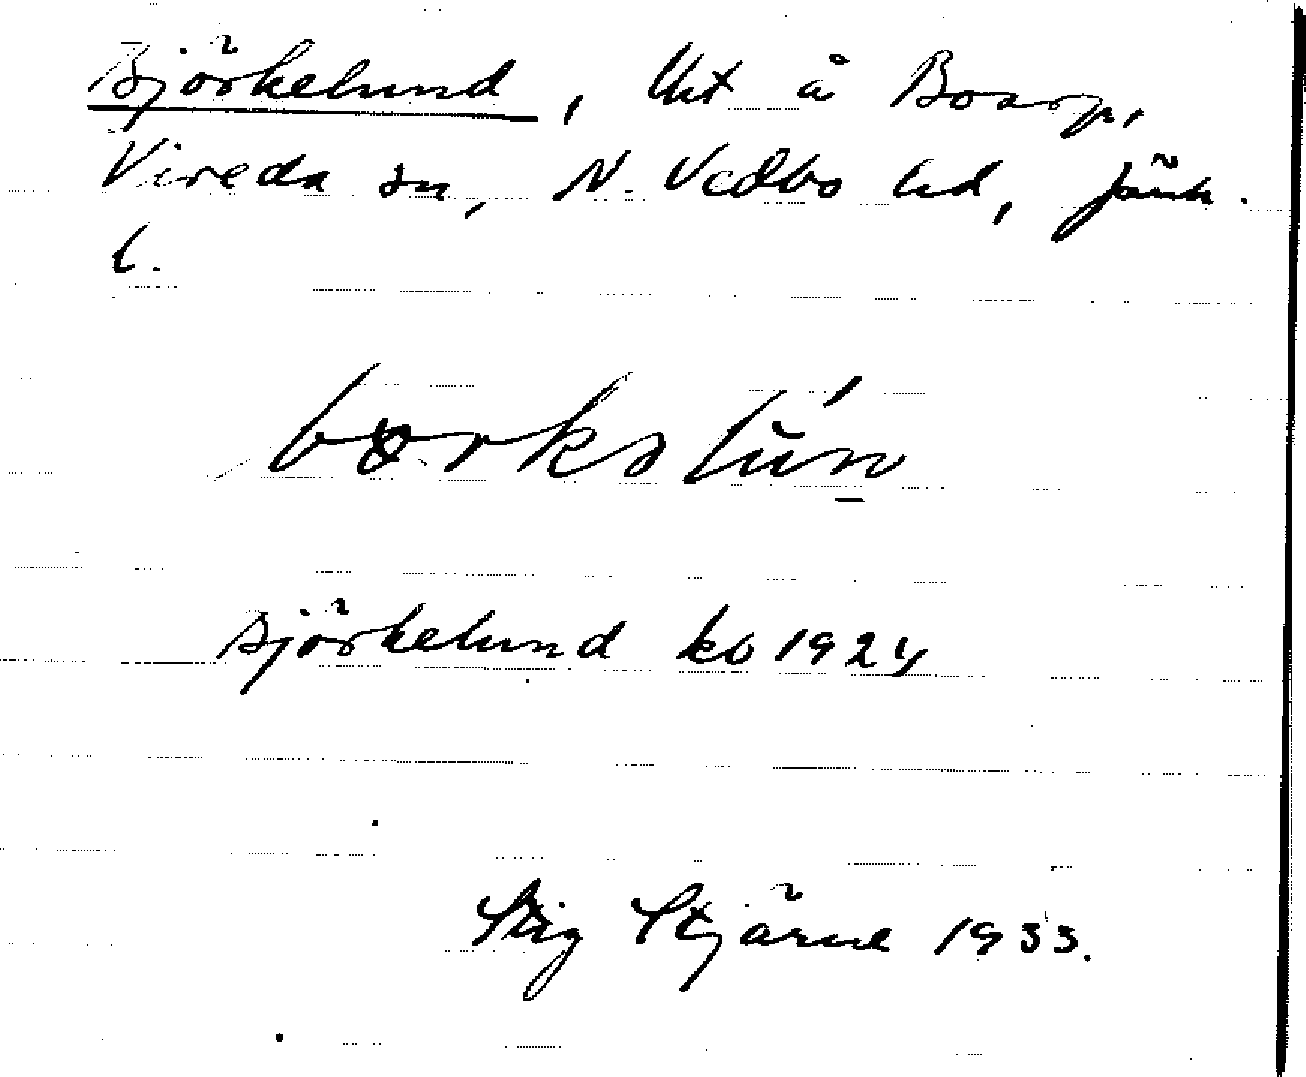 Björkelund, lht å Boarp,
Vireda sn, N. Vedbo hd, Jönk.
l.
Björkelund kb 1924
Stig Stjärne 1933.